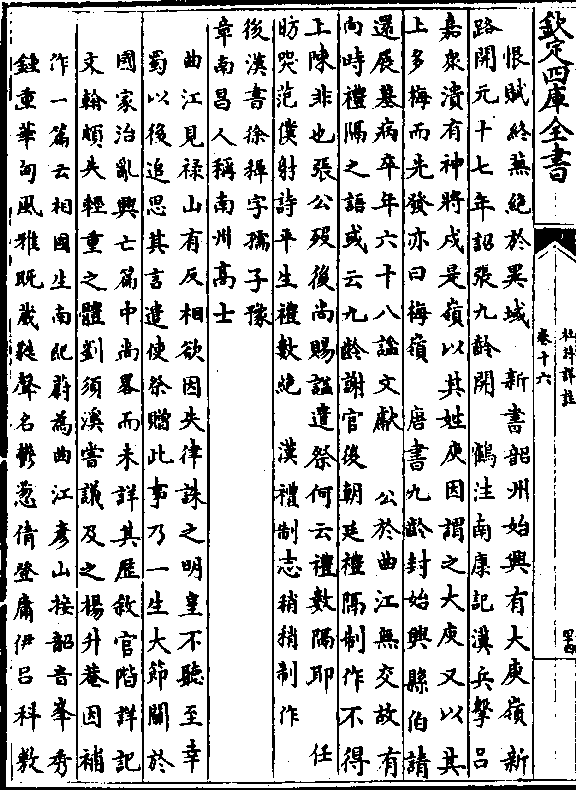 欽定四庫全書
杜詩詳註
卷十六
恨賦終蕪絶於異域　新書韶州始興有大庾嶺新
路開元十七年詔張九齡開　鶴注南康記漢兵擊呂
嘉衆潰有神將戍是嶺以其姓庾因謂之大庾又以其
上多梅而先發亦曰梅嶺　唐書九齡封始興縣伯請
還展墓病卒年六十八諡文獻　公於曲江無交故有
向時禮隔之語或云九齡謝官後朝廷禮隔制作不得
上陳非也張公殁後尚賜諡遣祭何云禮數隔耶　任
昉哭范僕射詩平生禮數絶　漢禮制志稍稍制作
後漢書徐穉字孺子豫
章南昌人稱南州高士
曲江見禄山有反相欲因失律誅之明皇不聽至幸
蜀以後追思其言遣使祭贈此事乃一生大節關於
國家治亂興亡篇中尚畧而未詳其歷敘官階詳記
文翰頗失輕重之體劉須溪嘗議及之楊升菴因補
作一篇云相國生南紀蔚為曲江彦山按韶音峯秀
鍾重華甸風雅既葳蕤聲名鬱葱倩登庸伊呂科敷